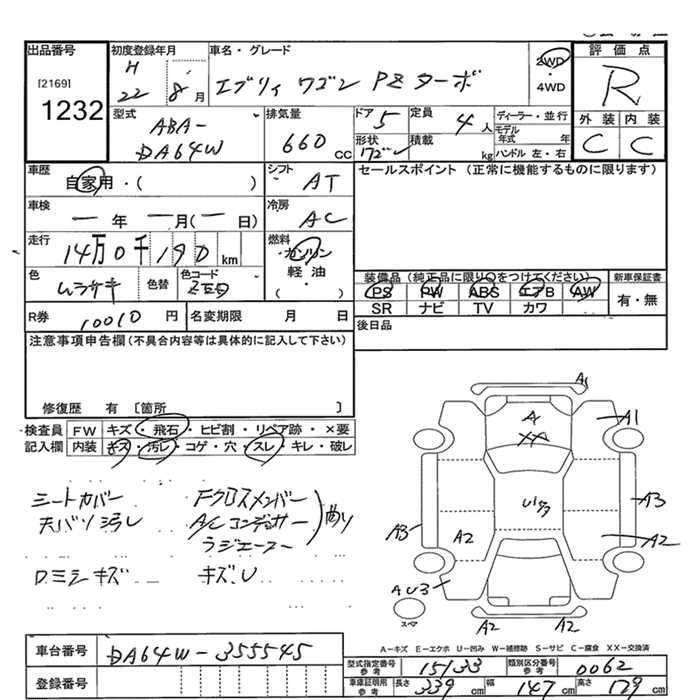 出品番号 初度登録年月 車名・グレード 評価点
[2169]
1232
H 22年 8月
エブリィ ワゴン PZ ターボ
2WD・4WD
R
型式 排気量 ドア 定員 ディーラー・並行 外装 内装
ABA-DA64W
660 cc
5
4人
モデル年式 年
C C
形状 積載 kg ハンドル 左・右
車歴 シフト セールスポイント (正常に機能するものに限ります)
自家用・( )
AT
車検 冷房
一年 一月(一日)
AC
走行 燃料
14万0千190 km
ガソリン
軽油
( ・ )
色 色替 色コード
ムラサキ
装備品 (純正品に限り○をつけてください) 新車保証書
PS PW ABS エアB AW
SR ナビ TV カワ
有・無
R券 10010 円 名変期限 月 日
後日品
注意事項申告欄 (不具合内容等は具体的に記入して下さい)
修復歴 有 [箇所 ]
検査員記入欄 FW キズ・飛石・ヒビ割・リペア跡・×要
内装 キズ・汚レ・コゲ・穴・スレ・キレ・破レ
シートカバー
天バリ汚レ
Fクロスメンバー
A/Cコンデンサー
ラジエーター
曲り
キズU
A1
A
XX
A1
A3
A3
A2
A2
AU3
スペア
A2
A2
A-キズ E-エクボ U-凹み W-補修跡 S-サビ C-腐食 XX-交換済
車台番号 DA64W-355545
登録番号
型式指定番号 参考 15133 類別区分番号 参考 0062
車庫証明用 参考 長さ 339 cm 幅 147 cm 高さ 179 cm